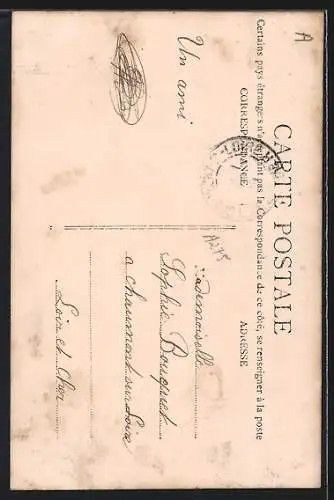 A
CARTE POSTALE
Certains pays étrangers n'acceptent pas la Correspondance de ce côté, se renseigner à la poste
CORRESPONDANCE
ADRESSE
Un ami
A275
Mademoiselle
Sophie Bouquet
a chaumont sur Loire
Loir et Cher